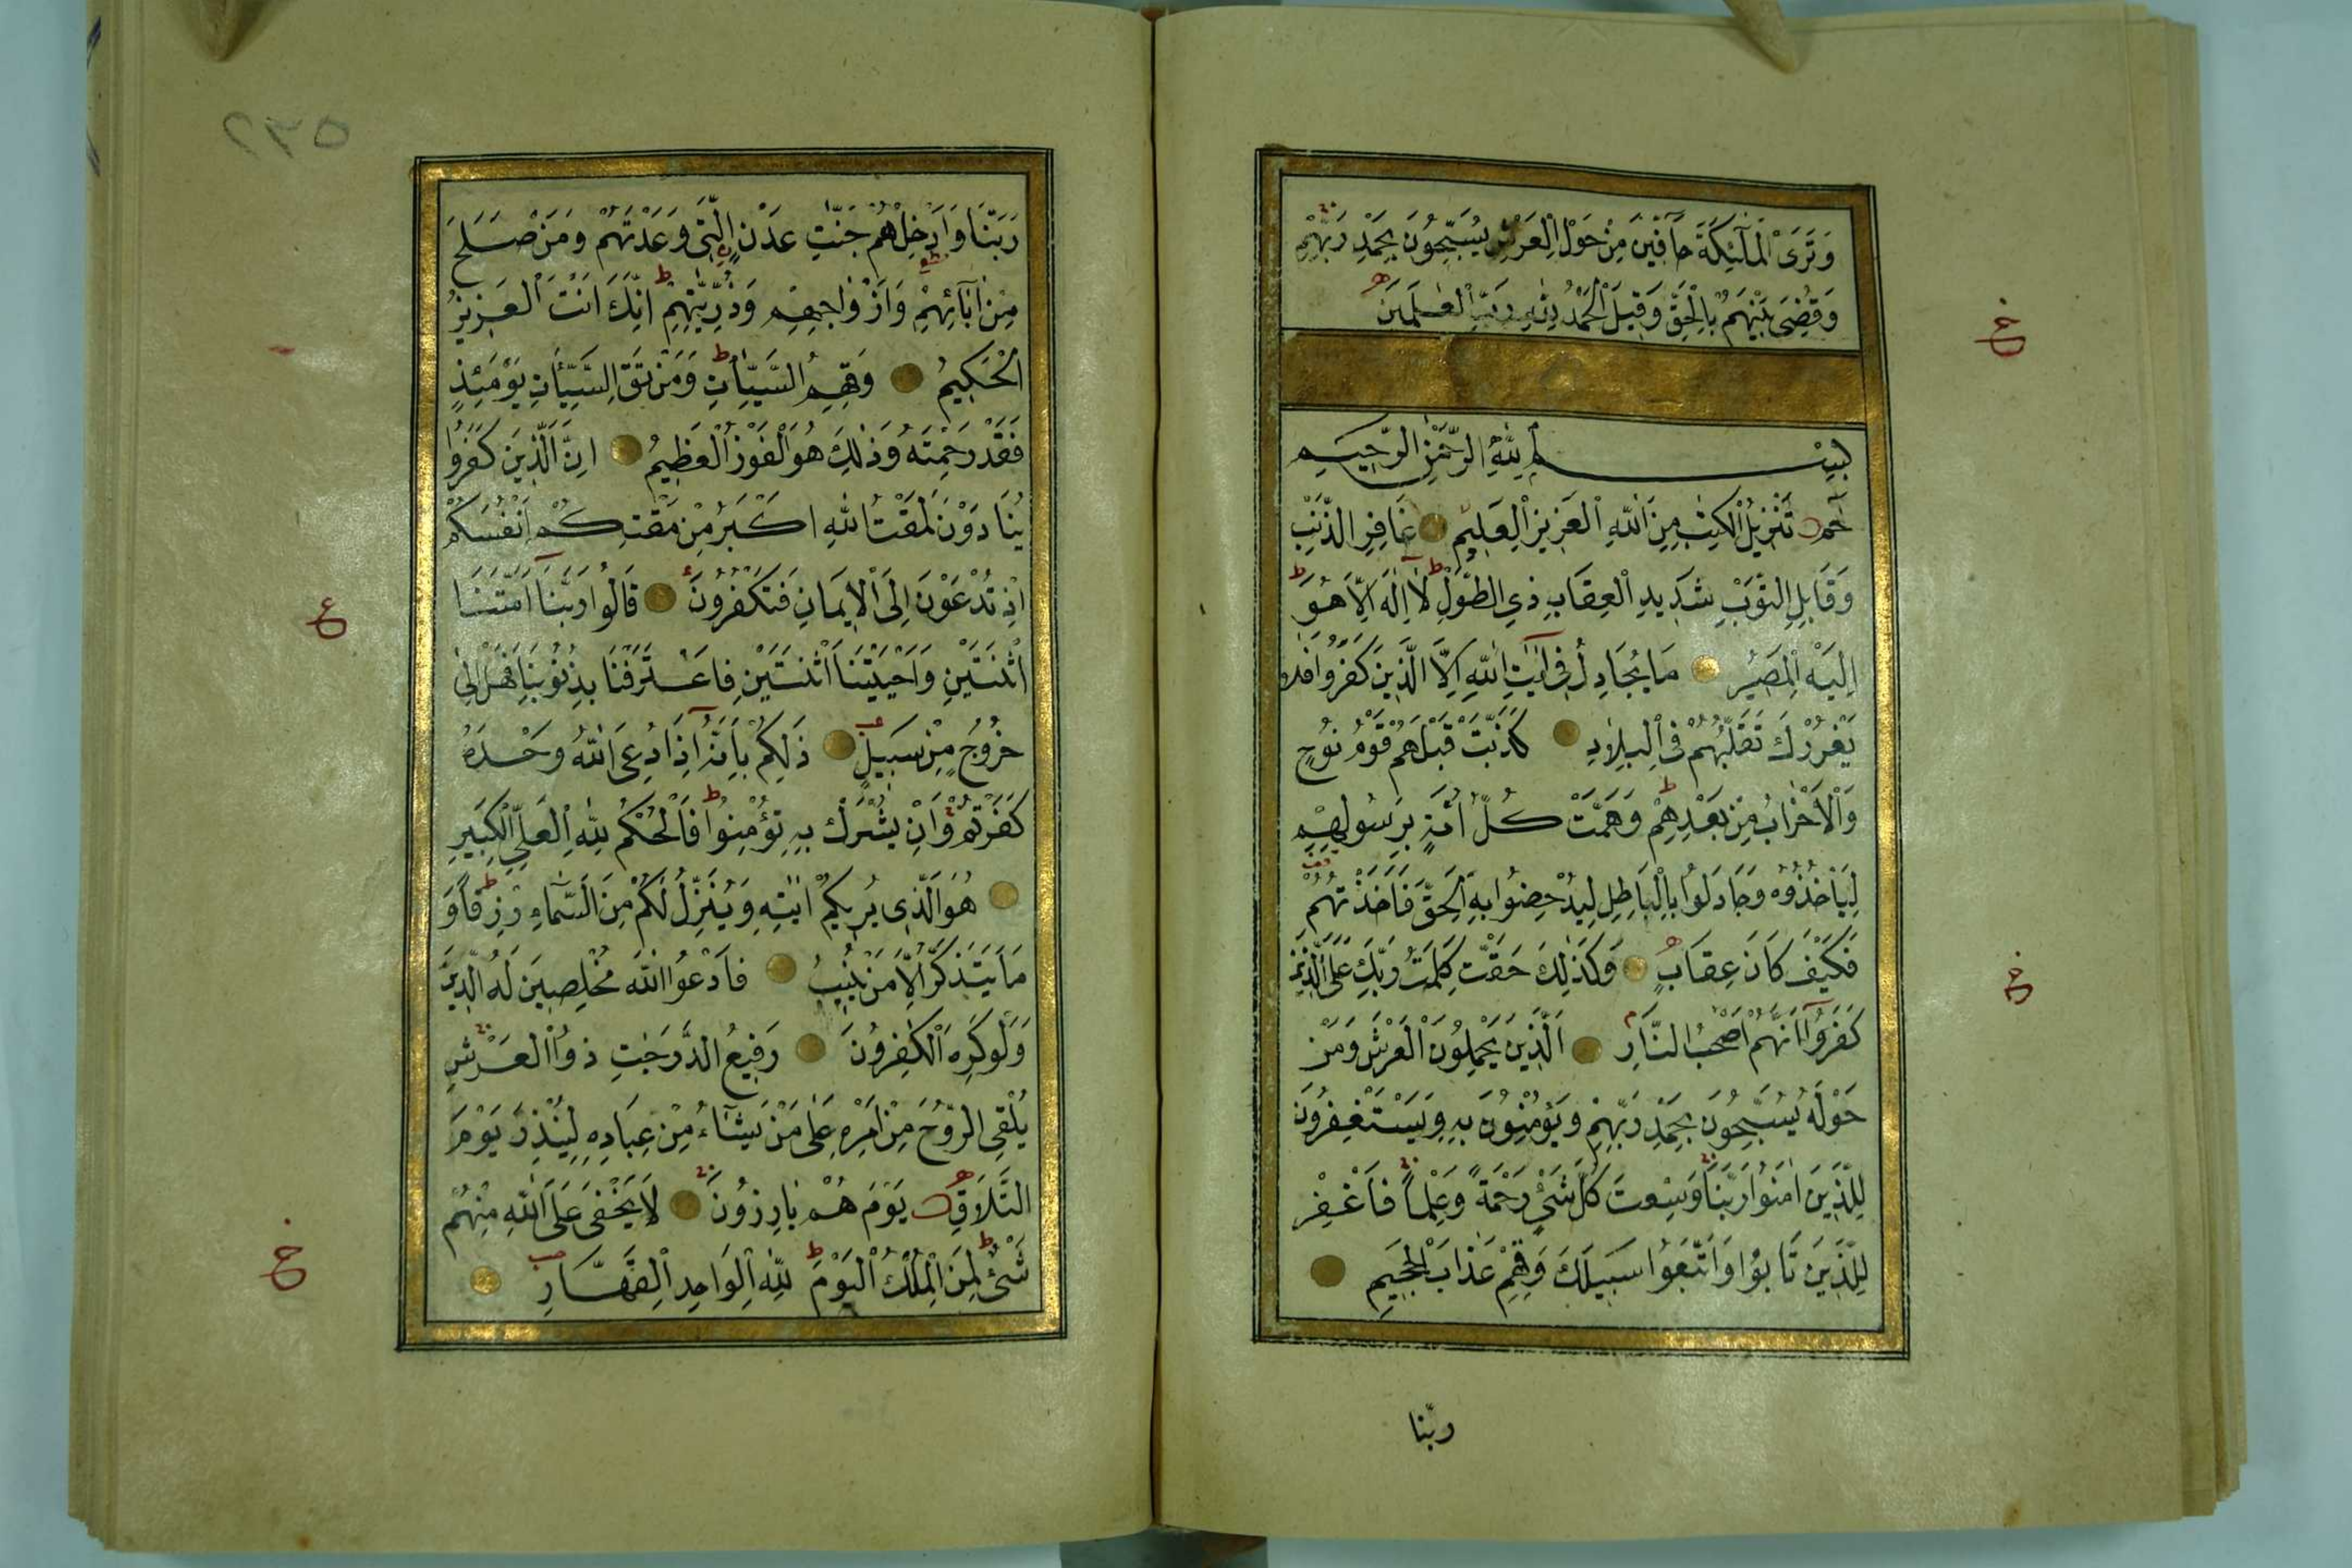 وَتَرَى الْمَلٰٓئِكَةَ حَٓافّٖينَ مِنْ حَوْلِ الْعَرْشِ يُسَبِّحُونَ بِحَمْدِ رَبِّهِمْ
وَقُضِىَ بَيْنَهُمْ بِالْحَقِّ وَقٖيلَ الْحَمْدُ لِلّٰهِ رَبِّ الْعٰلَمٖينَ
بِسْمِ اللّٰهِ الرَّحْمٰنِ الرَّحِيمِ
حٰمٓ تَنْزِيلُ الْكِتٰبِ مِنَ اللّٰهِ الْعَزِيزِ الْعَلِيمِ غَافِرِ الذَّنْبِ
وَقَابِلِ التَّوْبِ شَدِيدِ الْعِقَابِ ذِي الطَّوْلِ لَا اِلٰهَ اِلَّا هُوَ
اِلَيْهِ الْمَصِيرُ مَا يُجَادِلُ فِى اٰيَاتِ اللّٰهِ اِلَّا الَّذِينَ كَفَرُوا فَلَا
يَغْرُرْكَ تَقَلُّبُهُمْ فِى الْبِلَادِ كَذَّبَتْ قَبْلَهُمْ قَوْمُ نُوحٍ
وَالْاَحْزَابُ مِنْ بَعْدِهِمْ وَهَمَّتْ كُلُّ اُمَّةٍ بِرَسُولِهِمْ
لِيَأْخُذُوهُ وَجَادَلُوا بِالْبَاطِلِ لِيُدْحِضُوا بِهِ الْحَقَّ فَاَخَذْتُهُمْ
فَكَيْفَ كَانَ عِقَابِ وَكَذٰلِكَ حَقَّتْ كَلِمَتُ رَبِّكَ عَلَى الَّذِينَ
كَفَرُوا اَنَّهُمْ اَصْحٰبُ النَّارِ اَلَّذِينَ يَحْمِلُونَ الْعَرْشَ وَمَنْ
حَوْلَهُ يُسَبِّحُونَ بِحَمْدِ رَبِّهِمْ وَيُؤْمِنُونَ بِهِ وَيَسْتَغْفِرُونَ
لِلَّذِينَ اٰمَنُوا رَبَّنَا وَسِعْتَ كُلَّ شَىْءٍ رَحْمَةً وَعِلْمًا فَاغْفِرْ
لِلَّذِينَ تَابُوا وَاتَّبَعُوا سَبِيلَكَ وَقِهِمْ عَذَابَ الْجَحِيمِ
ربّنا
٢٣٥
رَبَّنَا وَاَدْخِلْهُمْ جَنّٰتِ عَدْنٍ الَّتِى وَعَدْتَهُمْ وَمَنْ صَلَحَ
مِنْ اٰبَٓائِهِمْ وَاَزْوٰاجِهِمْ وَذُرِّيّٰتِهِمْ اِنَّكَ اَنْتَ الْعَزِيزُ
الْحَكِيمُ وَقِهِمُ السَّيِّاٰتِ وَمَنْ تَقِ السَّيِّاٰتِ يَوْمَئِذٍ
فَقَدْ رَحِمْتَهُ وَذٰلِكَ هُوَ الْفَوْزُ الْعَظِيمُ اِنَّ الَّذِينَ كَفَرُوا
يُنَادَوْنَ لَمَقْتُ اللّٰهِ اَكْبَرُ مِنْ مَقْتِكُمْ اَنْفُسَكُمْ
اِذْ تُدْعَوْنَ اِلَى الْاِيمَانِ فَتَكْفُرُونَ قَالُوا رَبَّنَا اَمَتَّنَا
اثْنَتَيْنِ وَاَحْيَيْتَنَا اثْنَتَيْنِ فَاعْتَرَفْنَا بِذُنُوبِنَا فَهَلْ اِلٰى
خُرُوجٍ مِنْ سَبِيلٍ ذٰلِكُمْ بِاَنَّهُ اِذَا دُعِىَ اللّٰهُ وَحْدَهُ
كَفَرْتُمْ وَاِنْ يُشْرَكْ بِهِ تُؤْمِنُوا فَالْحُكْمُ لِلّٰهِ الْعَلِىِّ الْكَبِيرِ
هُوَ الَّذِى يُرِيكُمْ اٰيٰتِهِ وَيُنَزِّلُ لَكُمْ مِنَ السَّمَٓاءِ رِزْقًا وَ
مَا يَتَذَكَّرُ اِلَّا مَنْ يُنِيبُ فَادْعُوا اللّٰهَ مُخْلِصِينَ لَهُ الدِّينَ
وَلَوْ كَرِهَ الْكٰفِرُونَ رَفِيعُ الدَّرَجٰتِ ذُوا الْعَرْشِ
يُلْقِى الرُّوحَ مِنْ اَمْرِهِ عَلٰى مَنْ يَشَٓاءُ مِنْ عِبَادِهِ لِيُنْذِرَ يَوْمَ
التَّلَاقِ يَوْمَ هُمْ بَارِزُونَ لَا يَخْفٰى عَلَى اللّٰهِ مِنْهُمْ
شَىْءٌ لِمَنِ الْمُلْكُ الْيَوْمَ لِلّٰهِ الْوَاحِدِ الْقَهَّارِ